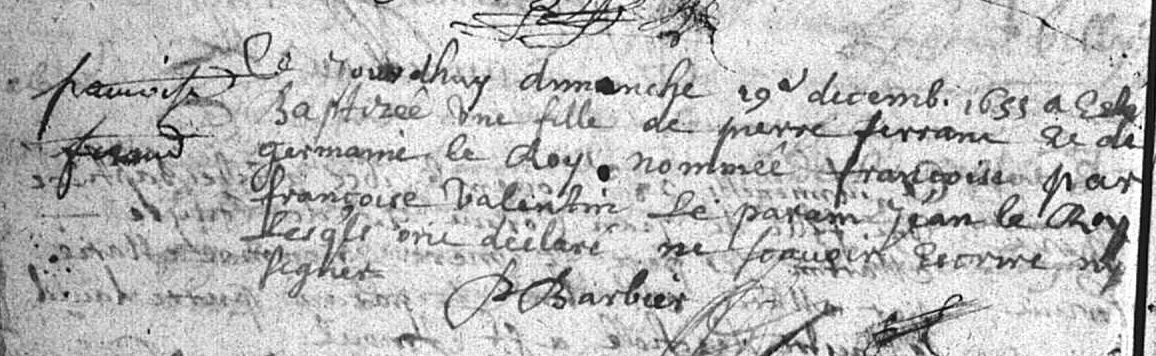 françoise
ferrand
Ce Jourdhuy dimanche 19e decemb. 1655 a Esté
Baptizeê une fille de pierre ferrant Et de
germaine le Roy. nommeê françoise par
françoise Valentin Le parain Jean le Roy
Lesqls ont déclaré ne scavoir Escrire ny
signer
P Barbier